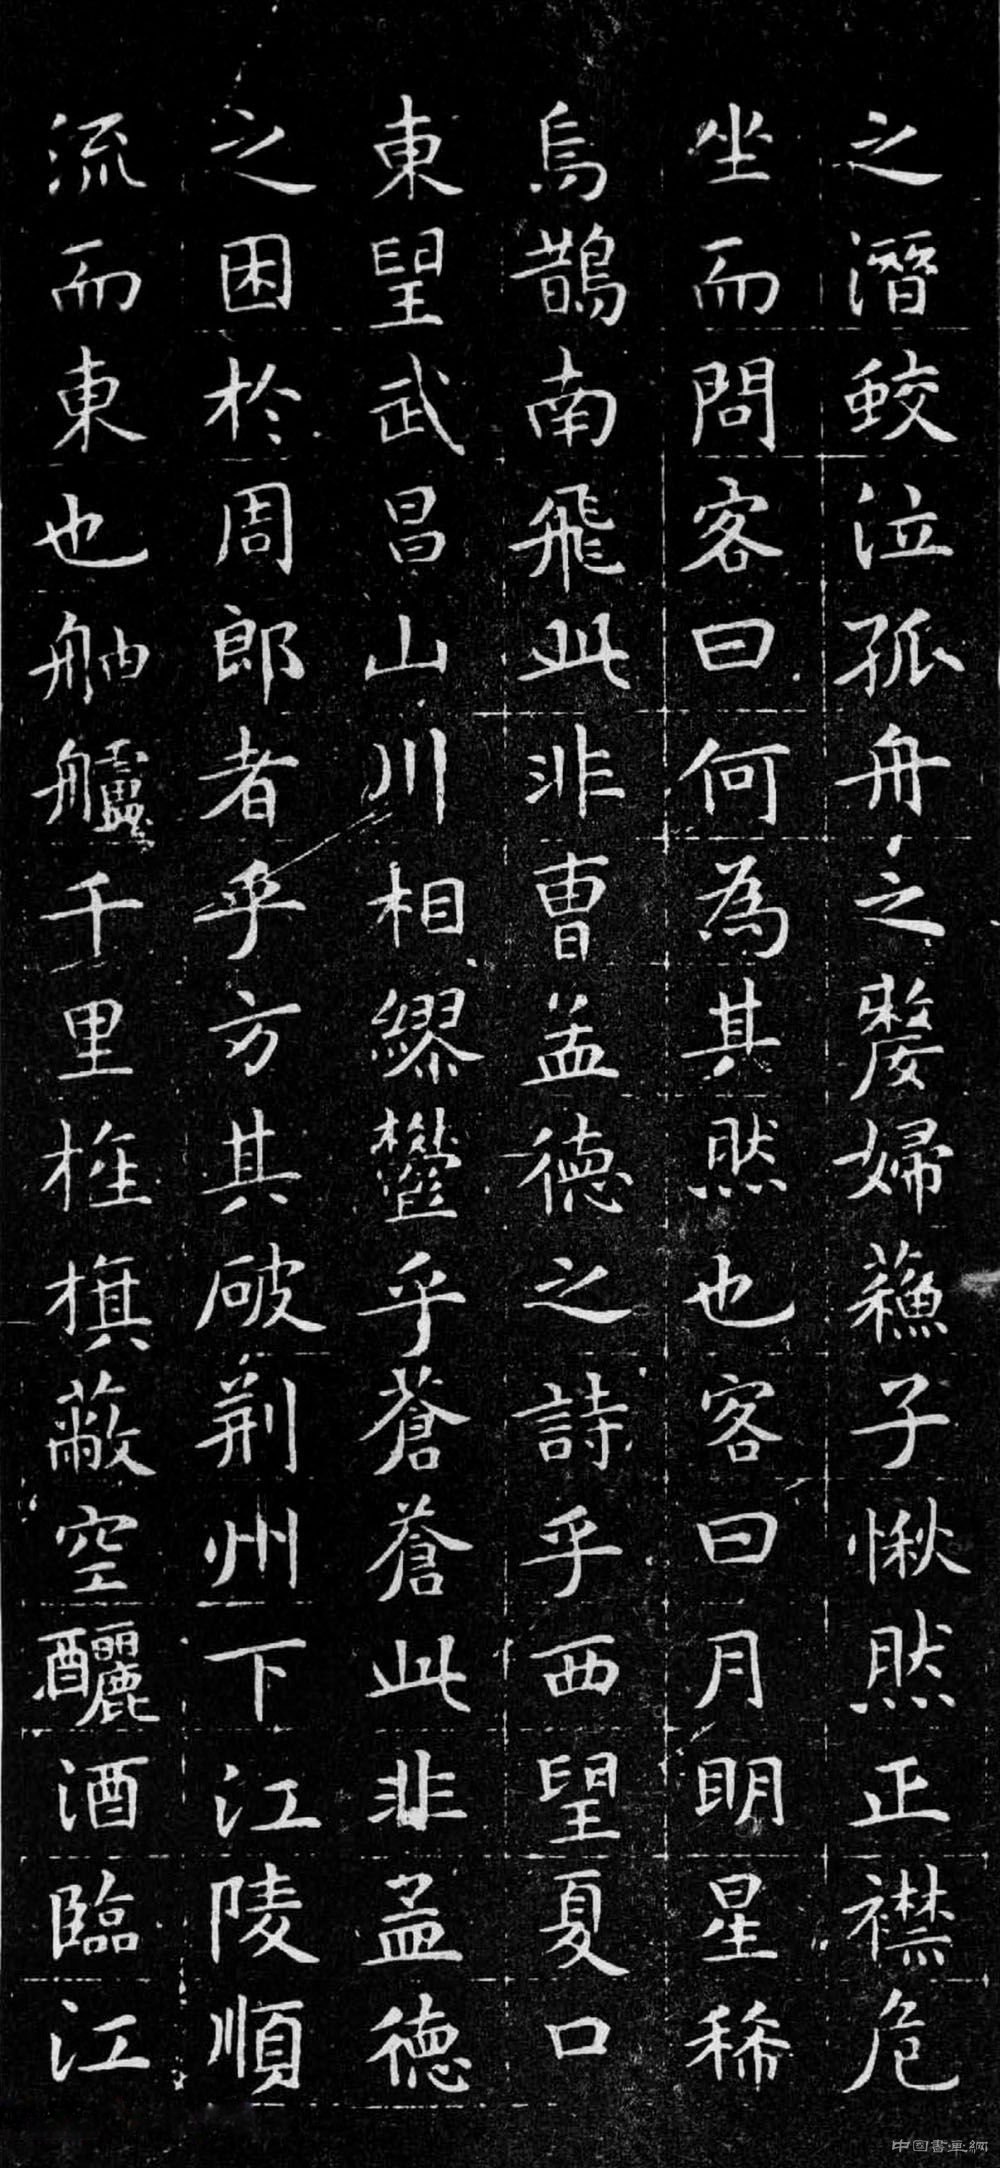 之潛鮫泣孤舟之嫠婦蘓子愀然正襟危
坐而問客曰何為其然也客曰月明星稀
烏鵲南飛此非曹孟德之詩乎西望夏口
東望武昌山川相繆鬱乎蒼蒼此非孟德
之困於周郎者乎方其破荊州下江陵順
流而東也舳艫千里旌旗蔽空釃酒臨江
中国書画網